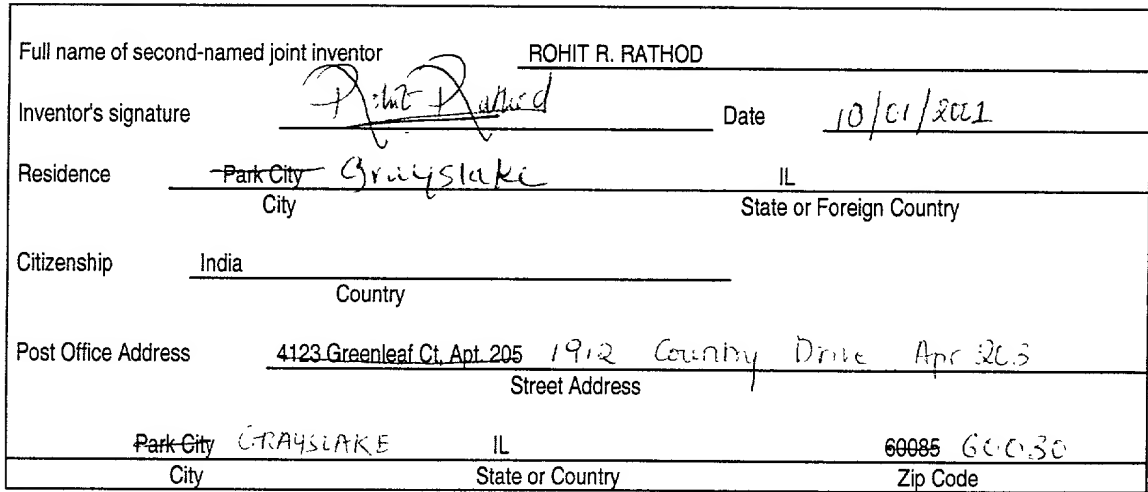 Full name of second-named joint inventor ROHIT R. RATHOD
Inventor's signature Rohit Rathod Date 10/01/2001
Residence Park City Grayslake IL
City State or Foreign Country
Citizenship India
Country
Post Office Address 4123 Greenleaf Ct, Apt. 205 1912 Country Drive Apt 203
Street Address
Park City GRAYSLAKE IL 60085 60030
City State or Country Zip Code